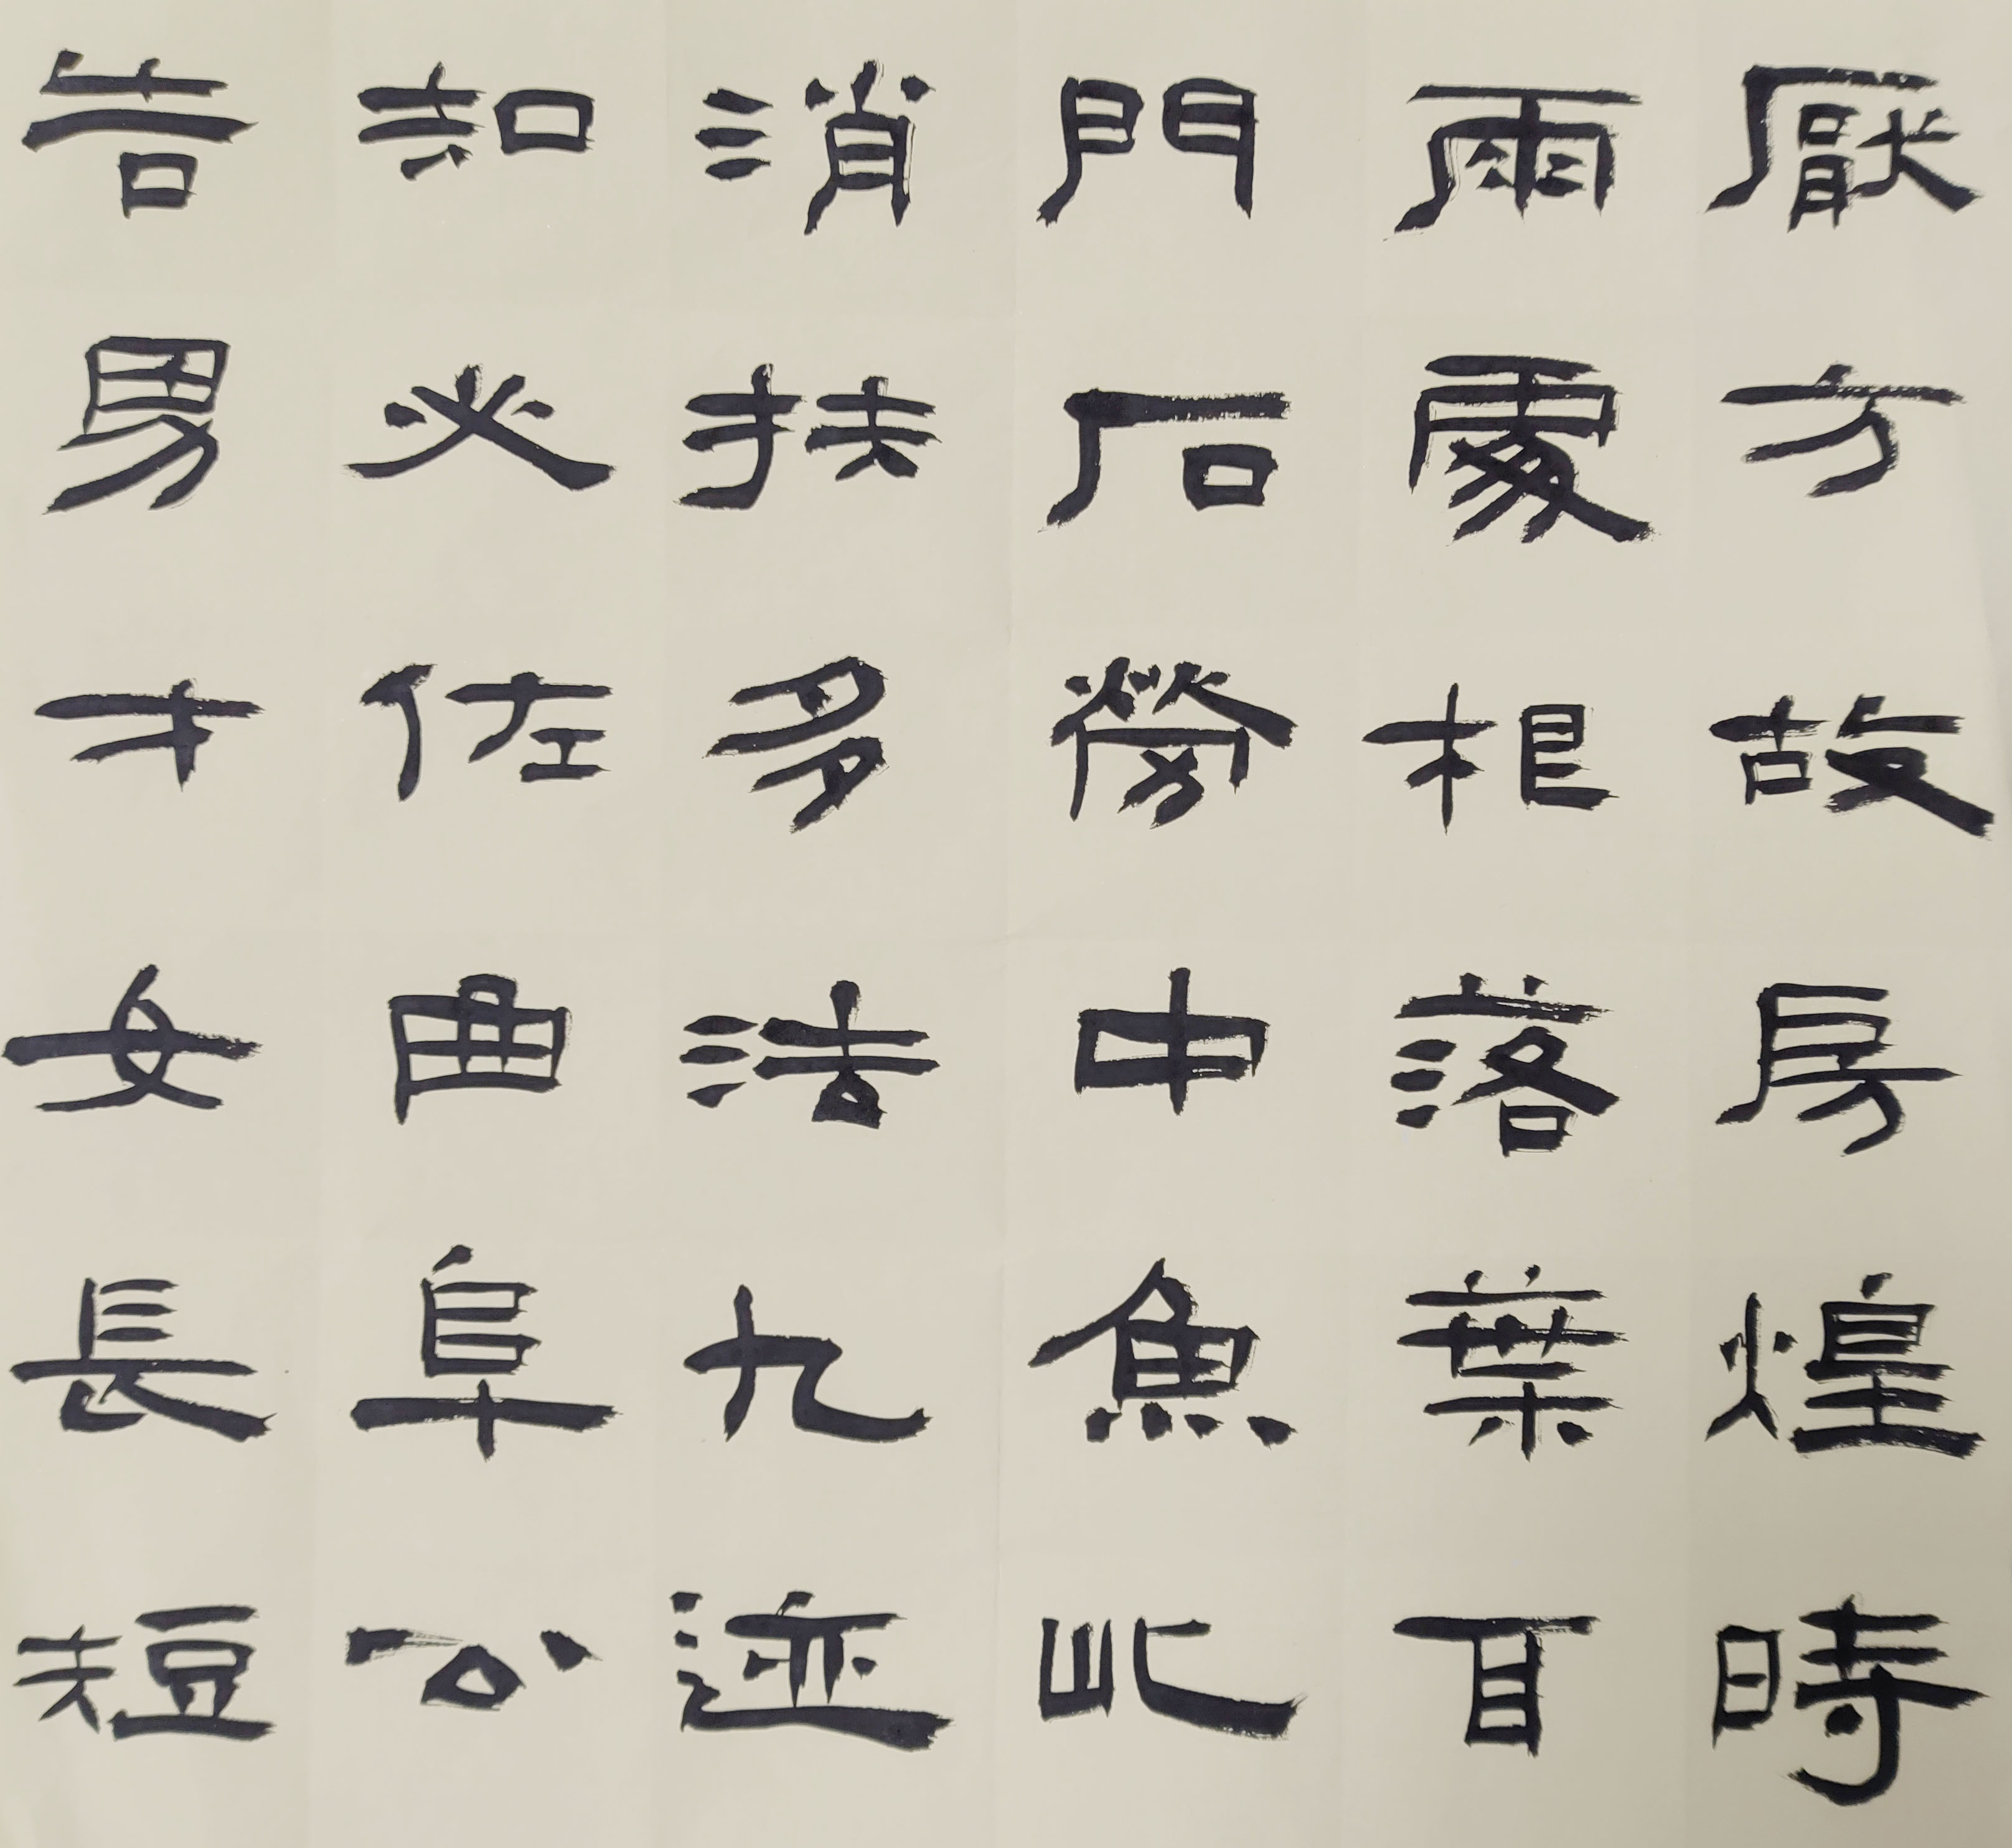 厭方故房煌時
雨處根落葉耳
門石勞中魚此
消扶多法九迹
知必佐曲阜公
告男才女長短